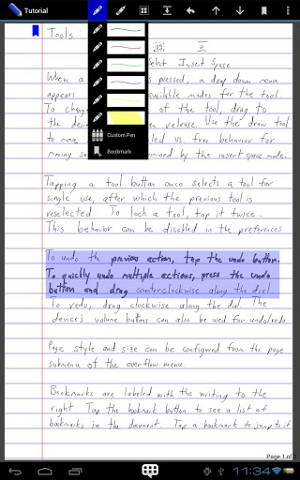 Tutorial
Tools:
Select Insert Space
When a
is pressed, a drop down menu
appears
available modes for the tool.
To change
of the tool, drag to
the de
en release. Use the draw tool
Custom Pen
Bookmark
Tapping a tool button once selects a tool for
single use, after which the previous tool is
reselected To lock a tool, tap it twice.
This behavior can be disabled in the preferences
To undo the previous action, tap the undo button.
To quickly undo multiple actions, press the undo
button and drag counterclockwise along the dial
To redo, drag clockwise along the dial The
device's volume buttons can also be used for undo/redo.
Page style and size can be configured from the page
submenu of the overflow menu
Bookmarks are labeled with the writing to the
right Tap the bookmark button to see a list of
bookmarks in the document. Tap a bookmark to jump to it
Page 1 of 2
11:34